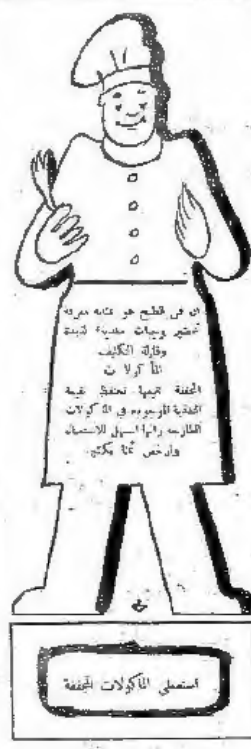 ان فن الطبخ هو عناية معرفة
تحضير وجبات مغذية لذيذة
وقليلة التكاليف
المأكولات
المجففة جميعها تحتفظ بقيمة
التغذية الموجوده في المأكولات
الطازجه وانها اسهل للاستعمال
وارخص ثمنا بكثير
استعملي المأكولات المجففة